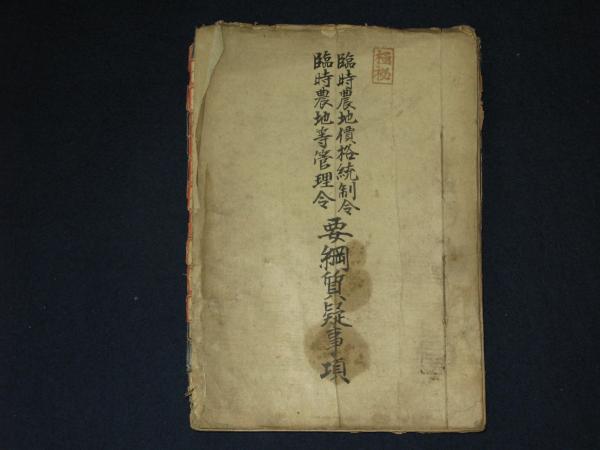 極秘
臨時農地價格統制令
臨時農地等管理令
要綱質疑事項